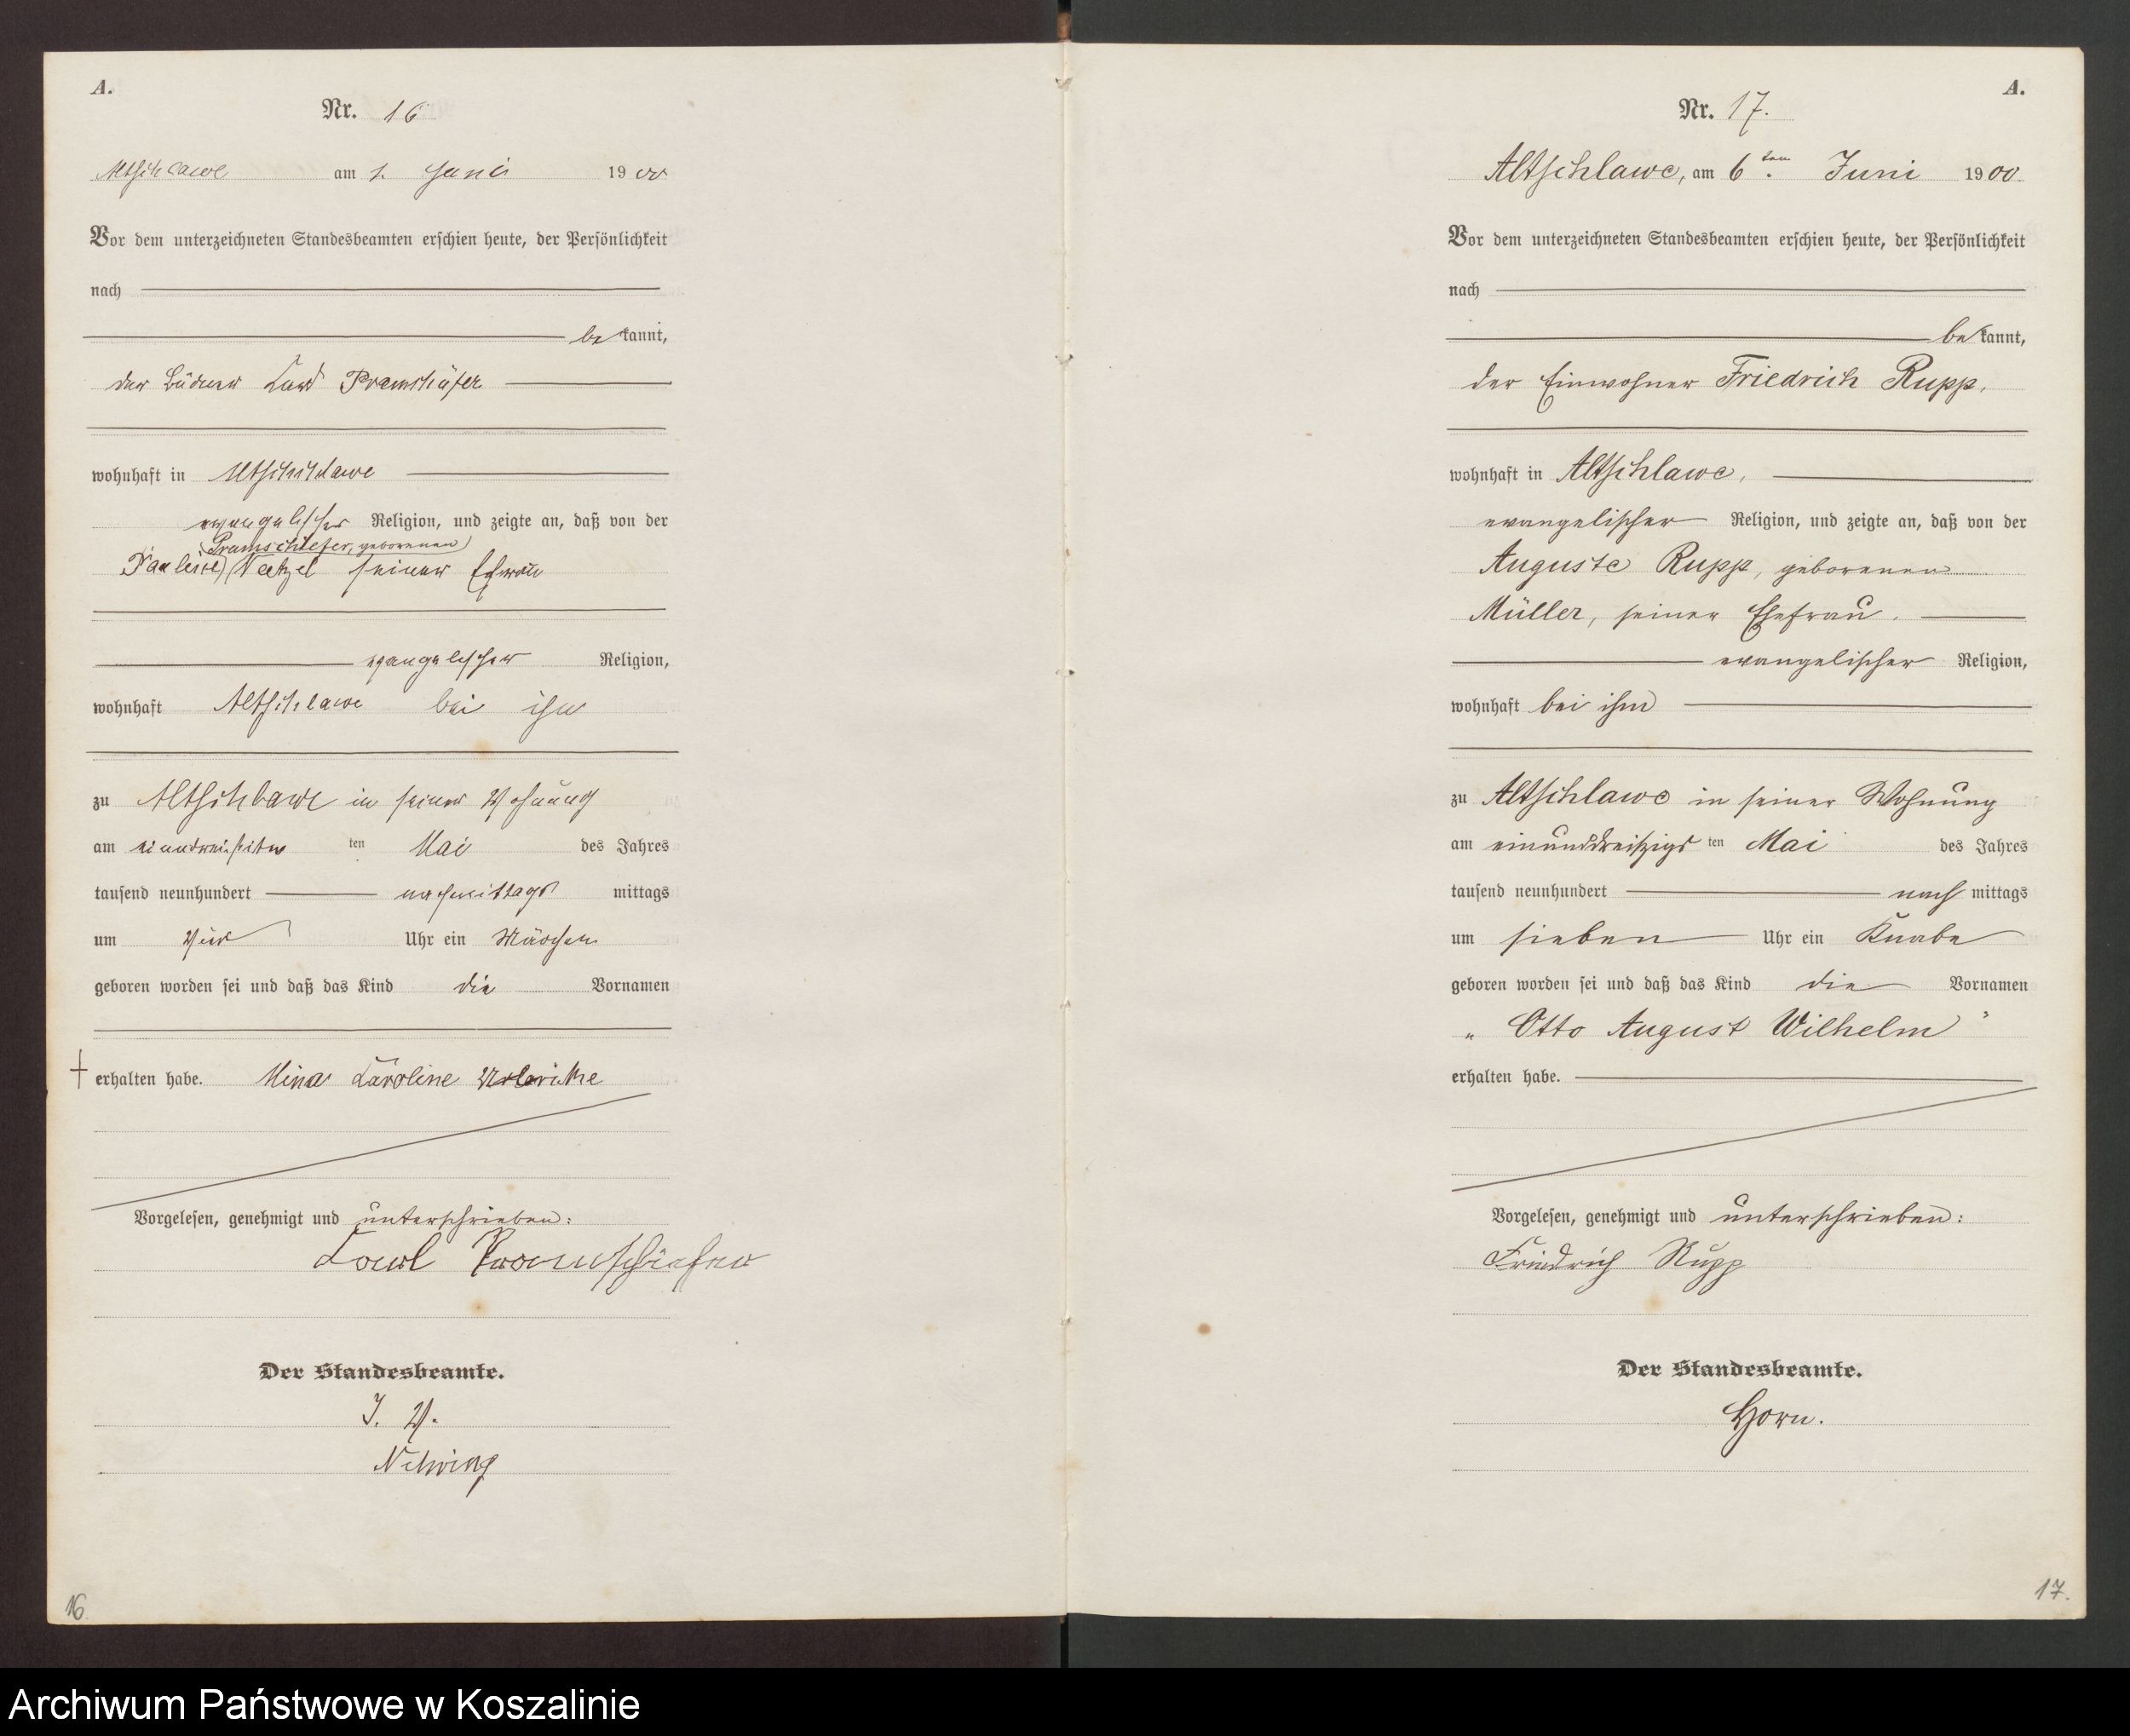 A.
Nr. 16
Altschlawe am 1. Juni 1900
Vor dem unterzeichneten Standesbeamten erschien heute, der Persönlichkeit
nach
bekannt,
der Büdner Carl
wohnhaft in Altschlawe
evangelischer Religion, und zeigte an, daß von der
geborenen
Pauline seiner
evangelischer Religion,
wohnhaft Altschlawe bei ihm
zu Altschlawe in seiner Wohnung
am ten Mai des Jahres
tausend neunhundert nachmittags mittags
um Uhr ein Mädchen
geboren worden sei und daß das Kind die Vornamen
erhalten habe. Mina Caroline
Vorgelesen, genehmigt und unterschrieben:
Carl Pramschiefer
Der Standesbeamte.
I. V.
16.
A.
Nr. 17.
Altschlawe, am 6ten. Juni 1900
Vor dem unterzeichneten Standesbeamten erschien heute, der Persönlichkeit
nach
bekannt,
der Einwohner Friedrich Rupp,
wohnhaft in Altschlawe,
evangelischer Religion, und zeigte an, daß von der
Auguste Rupp, geborenen
Müller, seiner Ehefrau.
evangelischer Religion,
wohnhaft bei ihm
zu Altschlawe in seiner Wohnung
am einunddreißigsten Mai des Jahres
tausend neunhundert nachmittags
um sieben Uhr ein Knabe
geboren worden sei und daß das Kind die Vornamen
„ Otto August Wilhelm "
erhalten habe.
Vorgelesen, genehmigt und unterschrieben:
Friedrich Rupp
Der Standesbeamte.
Horn.
17.
Archiwum Państwowe w Koszalinie